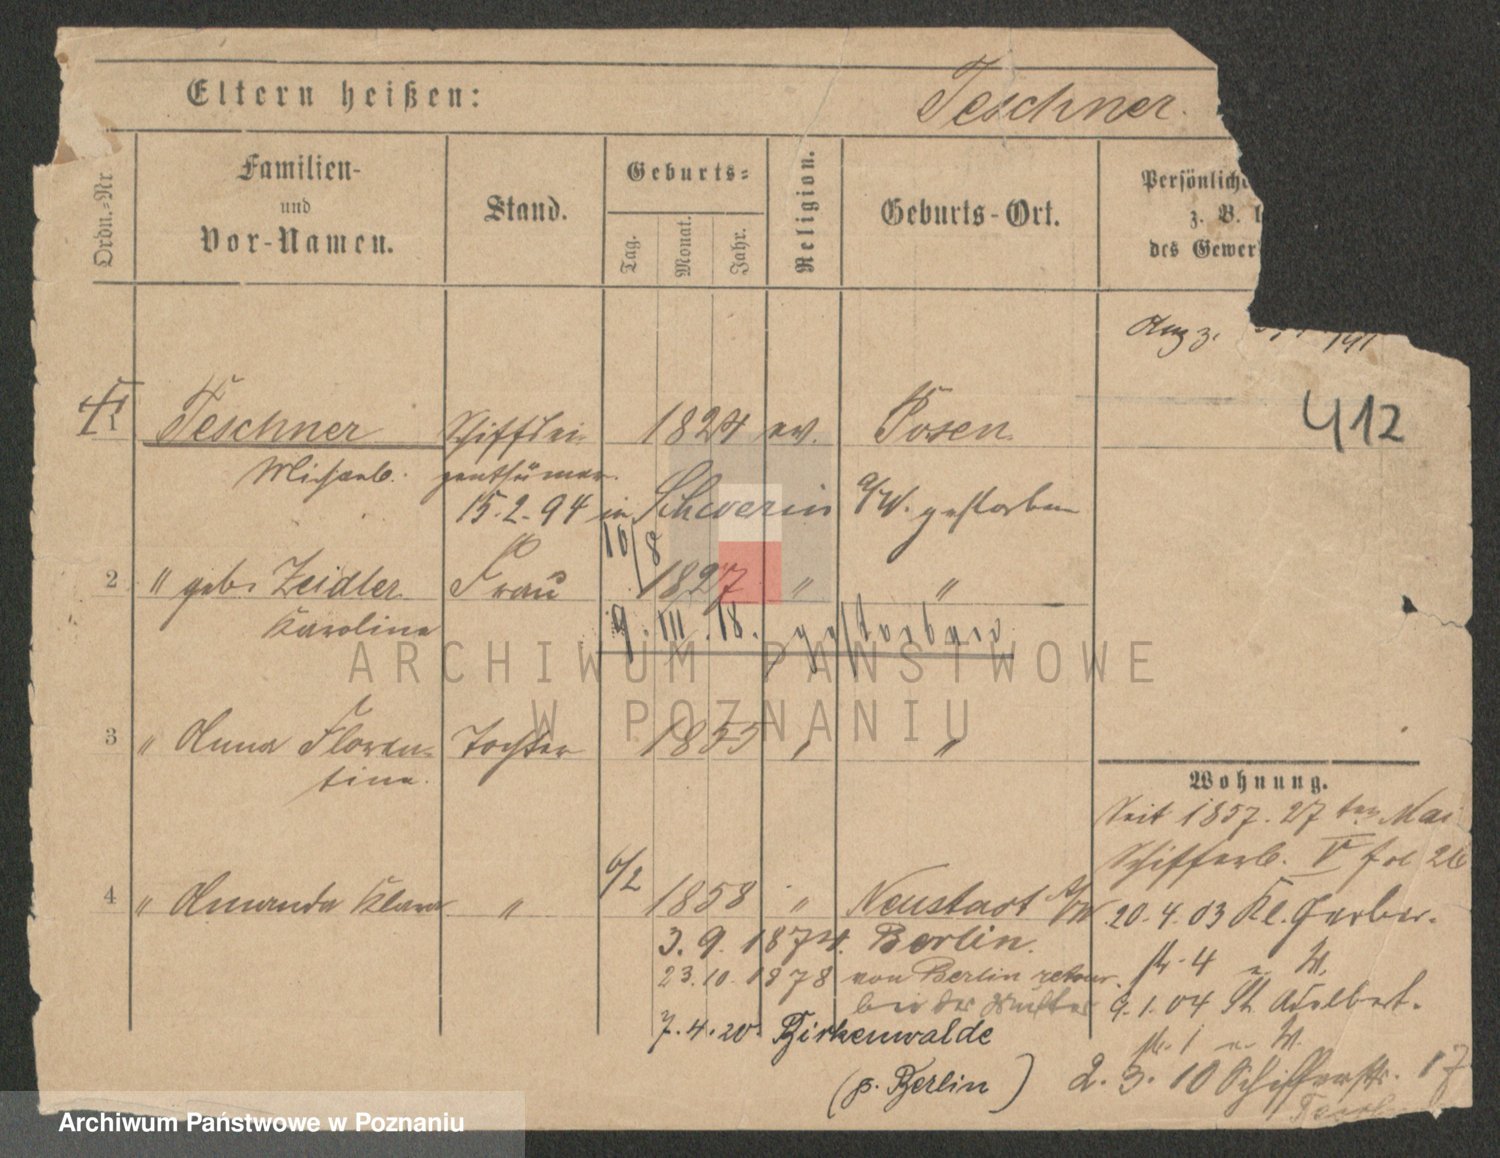 Eltern heißen:
Teschner.
Ordn.-Nr.
Familien-
und
Vor-Namen.
Stand.
Geburts-
Tag.
Monat.
Jahr.
Religion.
Geburts-Ort.
Persönliche
z. B.
des Gewer
412
1 Teschner Schifffsei- 1824 ev. Posen
Michael. genthümer.
15.2.94 in Schwerin a/W. gestorben
16/8
2 " geb. Zeidler Frau 1827 " "
Karoline
9. III. 18. gestorben
ARCHIWUM PAŃSTWOWE
W POZNANIU
3 " Anna Floren- Tochter 1855 " "
tine.
Wohnung.
Seit 1857. 27 ten Mai
Schifferb. V fol 26
6/2
4 " Amanda Klara " 1858 " Neustadt a/W
20.4.03 Kl. Gerber-
3. 9. 1874. Berlin.
str. 4 u. W.
23.10.1878 von Berlin retour.
bei der Mutter
9.1.04 St. Adalbert-
7.4.20. Birkenwalde
str. 1 u. W.
(p. Berlin)
2. 3. 10 Schifferstr. 17
Archiwum Państwowe w Poznaniu